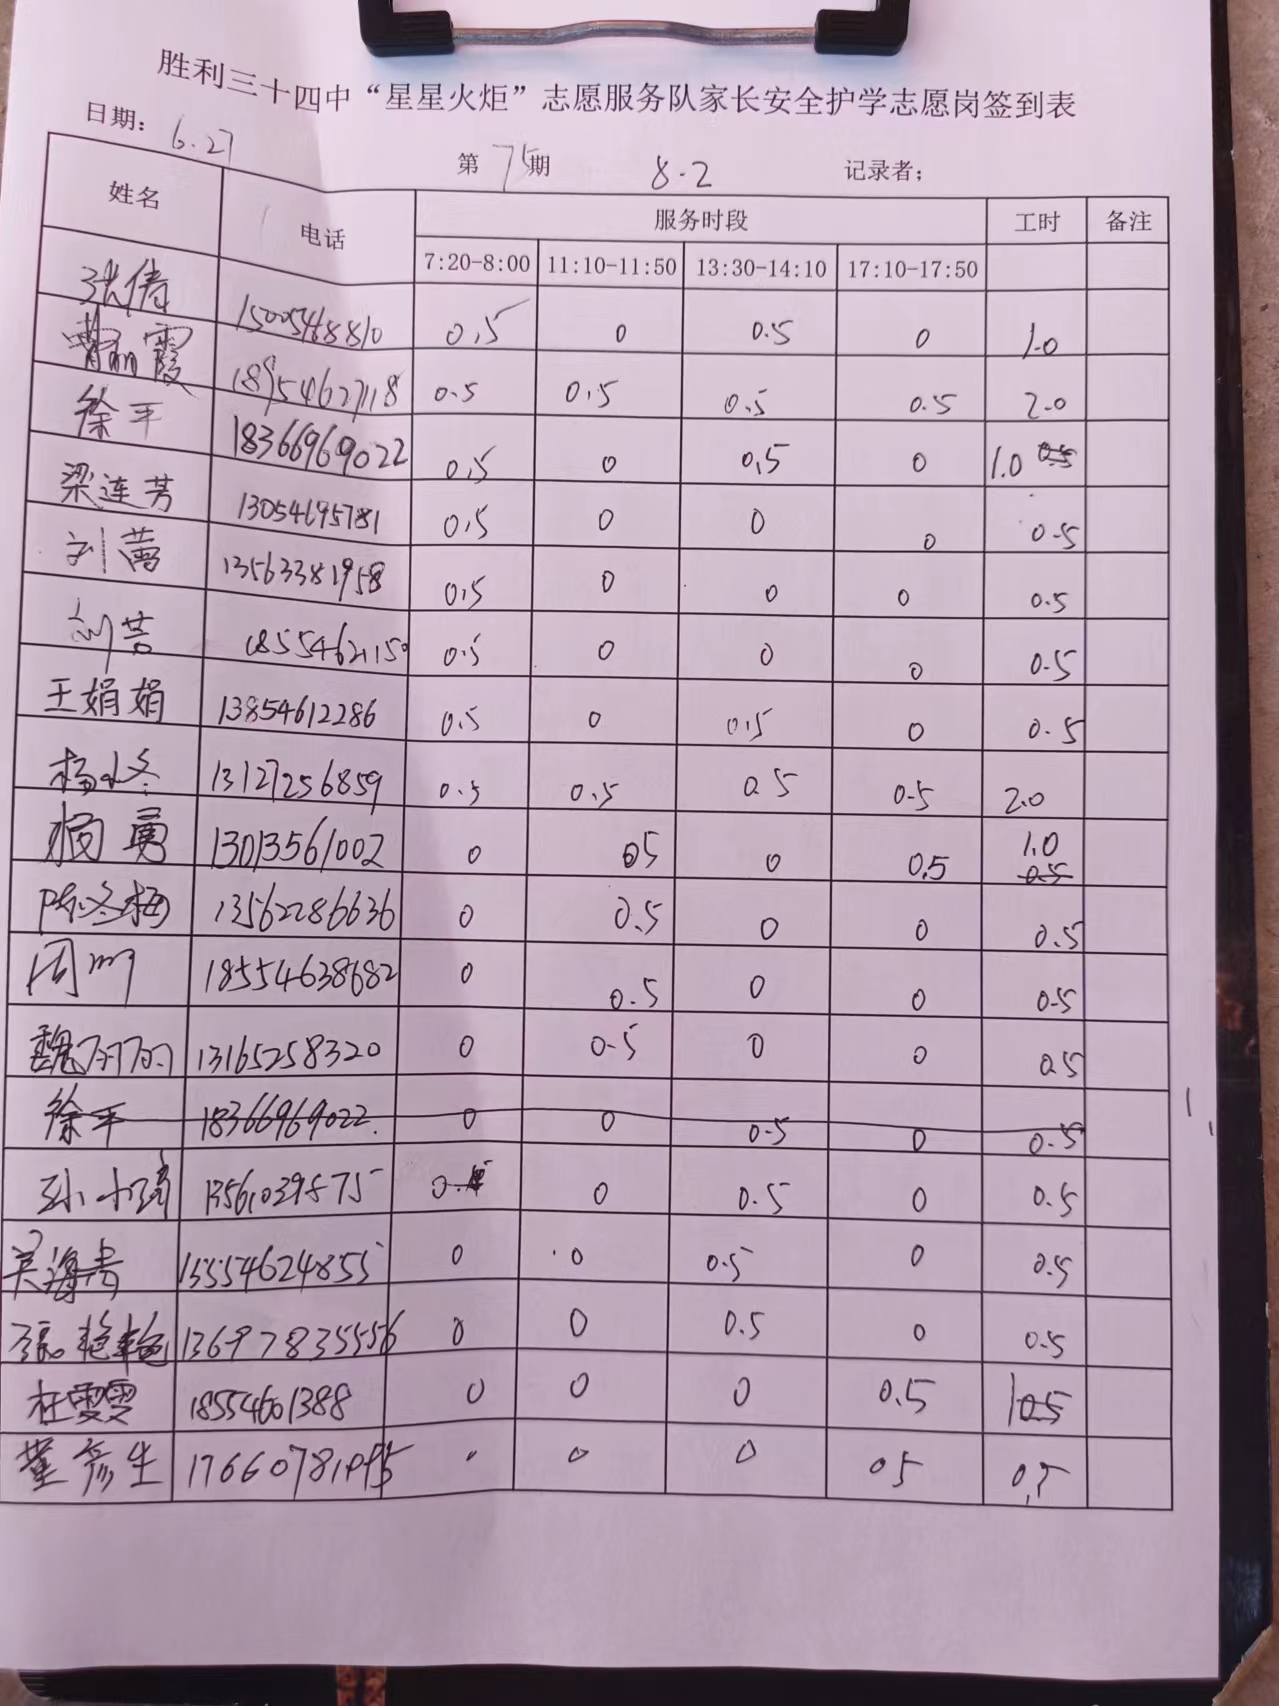 胜利三十四中“星星火炬”志愿服务队家长安全护学志愿岗签到表
日期: 6.27 第 75 期 8.2 记录者;
姓名 电话 服务时段 工时 备注
7:20-8:00 11:10-11:50 13:30-14:10 17:10-17:50
张倩 15005468810 0.5 0 0.5 0 1.0
曹丽霞 18954627118 0.5 0.5 0.5 0.5 2.0
徐平 18366969022 0.5 0 0.5 0 1.0 0.5
梁连芳 13054695781 0.5 0 0 0 0.5
刘蕾 13563381958 0.5 0 0 0 0.5
刘芸 18554621150 0.5 0 0 0 0.5
王娟娟 13854612286 0.5 0 0.5 0 0.5
杨冬 13127256859 0.5 0.5 0.5 0.5 2.0
杨勇 13013561002 0 0.5 0 0.5 1.0 0.5
陈冬梅 13562286636 0 0.5 0 0 0.5
周 18554638682 0 0.5 0 0 0.5
魏 13165258320 0 0.5 0 0 0.5
徐平 18366969022. 0 0 0.5 0 0.5
孙小 13561039575 0 0.5 0 0.5
吴海青 15554624855 0 0 0.5 0 0.5
张艳艳 13697835556 0 0 0.5 0 0.5
杜雯雯 18554601388 0 0 0 0.5 0.5
董彦生 0 0 0.5 0.5